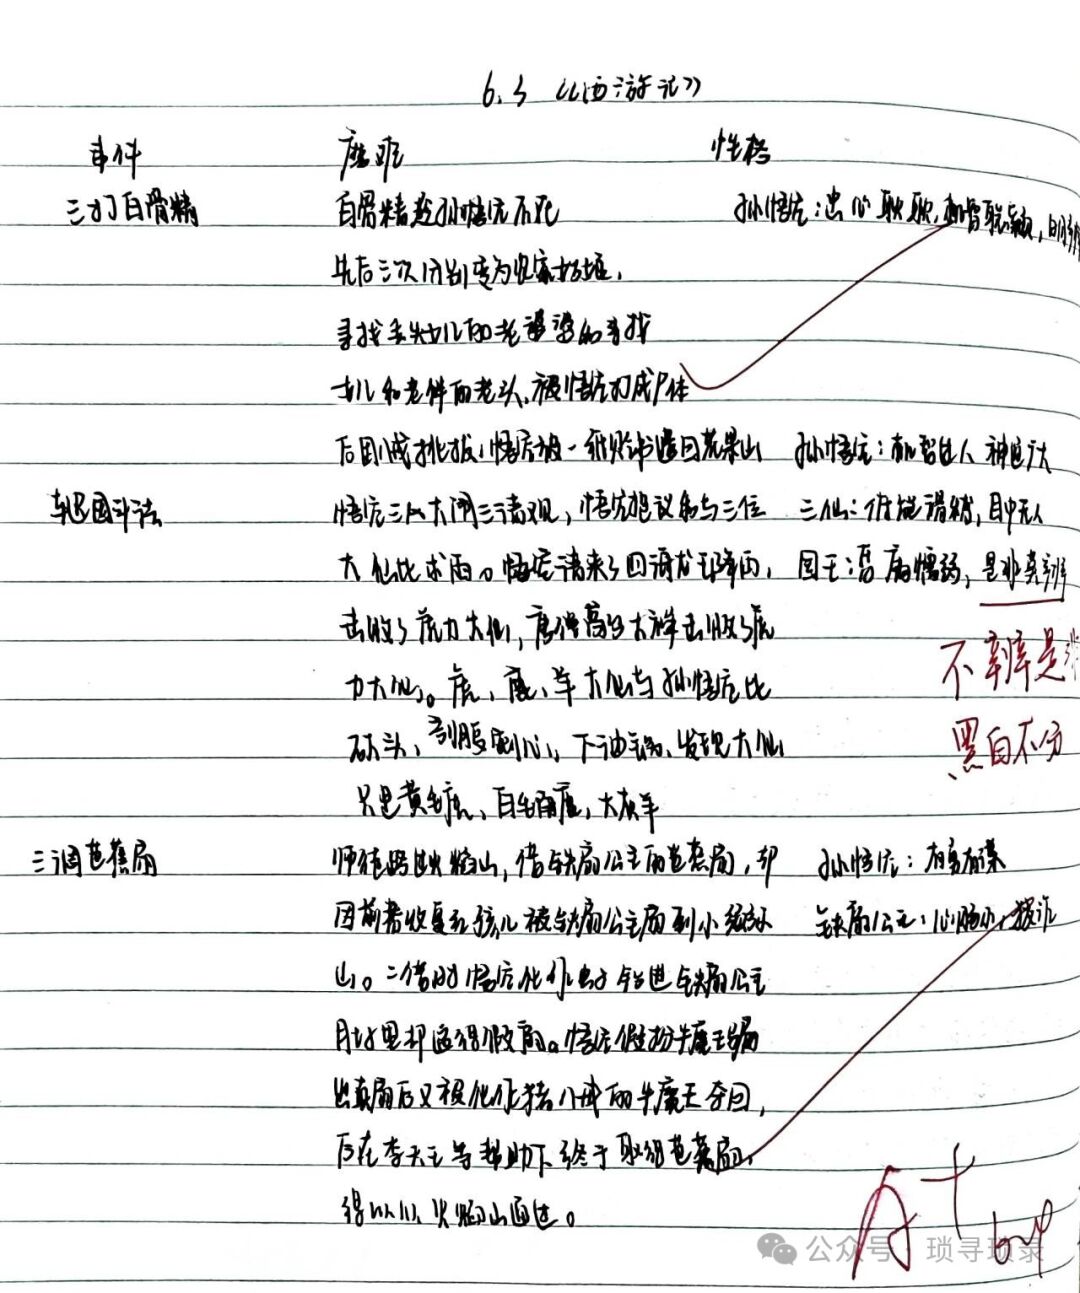 6.3 《西游记》
事件 磨难 性格
三打白骨精 白骨精趁孙悟空不在 孙悟空:忠心耿耿,机智聪颖,明辨
先后三次分别变为农家姑娘,
寻找丢失女儿的老婆婆和寻找
女儿和老伴的老头,被悟空打成尸体
后因八戒挑拨,悟空被一纸贬书遣回花果山 孙悟空:机智过人 神通广大
车迟国斗法 悟空三人大闹三清观,悟空提议和与三位 三仙: 目中无人
大仙比求雨。悟空请来了四海龙王降雨, 国王:昏庸懦弱,是非莫辨
击败了虎力大仙,唐僧高台 击败了虎
力大仙。虎、鹿、羊大仙与孙悟空比 不辨是非
砍头、剖腹剜心、下油锅、发现大仙 黑白不分
只是黄毛虎、白毛角鹿,大灰羊
三调芭蕉扇 师徒路过火焰山,借铁扇公主的芭蕉扇,却 孙悟空:有勇有谋
因前者收复红孩儿被铁扇公主扇到小须弥 铁扇公主:心胸小,狡诈
山。二借时悟空化作虫子钻进铁扇公主
肚里却返得假扇。悟空假扮牛魔王骗
出真扇后又被化作猪八戒的牛魔王夺回,
后在李天王等帮助下终于取得芭蕉扇,
得以从火焰山通过。
A+
公众号·琐寻琐录